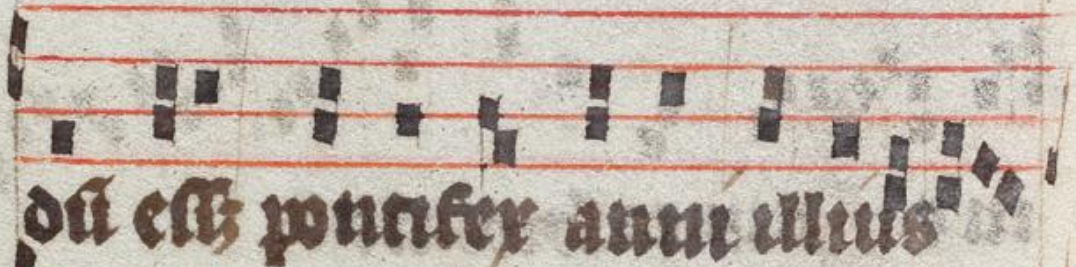 dū eſſꝫ pontifex anni illius